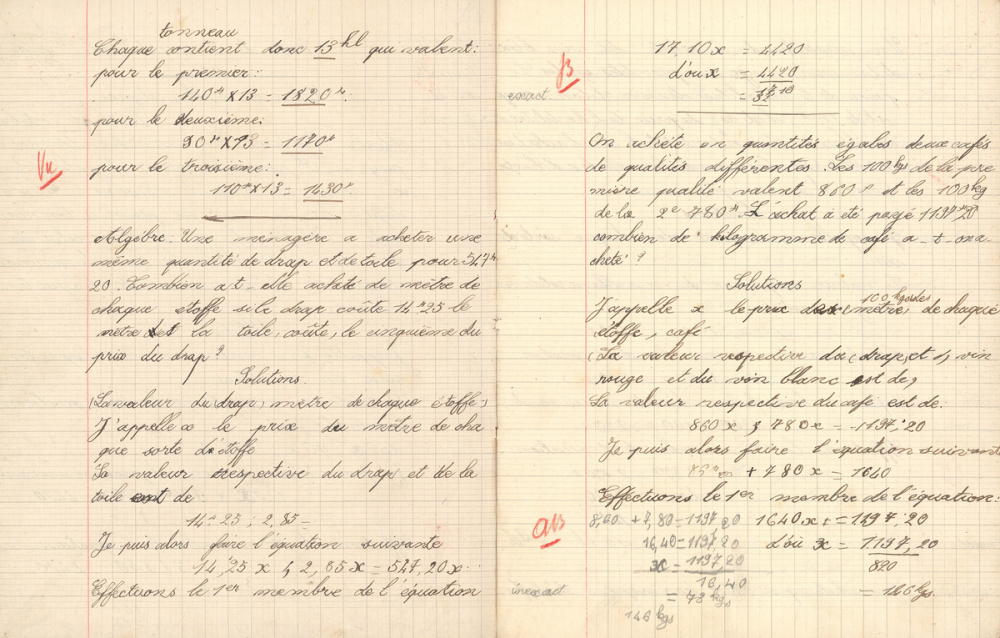 tonneau
Chaque contient donc 13 hl qui valent:
pour le premier:
140 × 13 = 1820
pour le deuxième:
90 × 13 = 1170
Vu
pour le troisième:
110 × 13 = 1430
Algèbre. Une ménagère a acheter une
même quantité de drap et de toile pour 547
20. Combien a t-elle acheté de mètre de
chaque étoffe si le drap coûte 14 25 le
mètre et la toile, coûte, le cinquième du
prix du drap?
Solutions.
(La valeur du (drap) mètre de chaque étoffe)
J'appelle x le prix du mètre de cha
que sorte d'étoffe
La valeur respective du drap et de la
toile est de
14 25 ; 2,85 =
Je puis alors faire l'équation suivante
14,25 x 2,85x = 547,20x
Effectuons le 1er membre de l'équation
B
exact
17,10x = 4420
d'où x = 4420
17 10
= 32
On achète en quantités égales deux cafés
de qualités différentes. Les 100 kgs de la pre
mière qualité valent 860 f et les 100 kg
de la 2e 780. L'achat a été payé 1197 20
combien de kilogramme de café a-t-on a-
cheté?
Solutions
100 kgs des
J'appelle x le prix des (mètre) de chaque
étoffe, café
(La valeur respective du (drap, et, vin
rouge et du vin blanc est de,
La valeur respective du café est de:
860 x 780x = 1197,20
Je puis alors faire l'équation suivant
+ 780x = 1640
Effectuons le 1er membre de l'équation:
8,60 + 7,80 = 1197,20 1640x = 1197,20
AB
16,40 = 1197,20 d'où x = 1197,20
820
x = 1197,20
16,40
inexact
= 73 kgs = 146 kgs
146 kgs